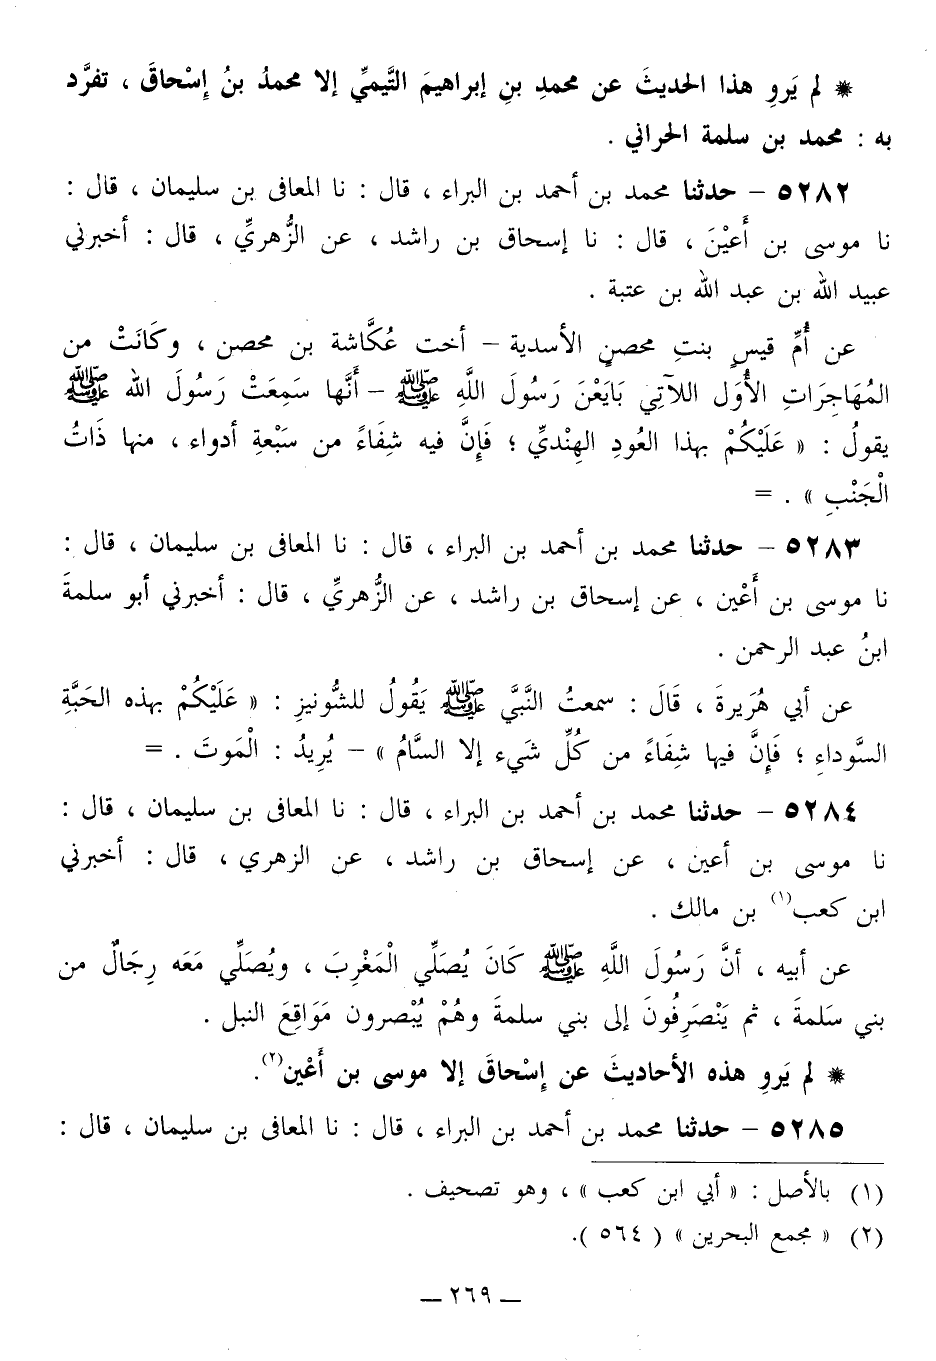 * لم يَروِ هذا الحديثَ عن محمدِ بنِ إبراهيمَ التَّيميِّ إلا محمدُ بنُ إِسْحاقَ ، تفرَّد
به : محمد بن سلمة الحراني .
٥٢٨٢ – حدثنا محمد بن أحمد بن البراء ، قال : نا المعافى بن سليمان ، قال :
نا موسى بن أَعيْنَ ، قال : نا إسحاق بن راشد ، عن الزُّهريِّ ، قال : أخبرني
عبيد الله بن عبد الله بن عتبة .
عن أُمِّ قيسٍ بنتِ محصنٍ الأسدية – أخت عُكَّاشة بن محصن ، وكَانَتْ من
المُهَاجِرَاتِ الأُوَل اللاَّتِي بَايَعْنَ رَسُولَ اللَّهِ ﷺ – أَنَّها سَمِعَتْ رَسُولَ الله ﷺ
يقولُ : « عَلَيْكُمْ بهذا العُودِ الهِنْديِّ ؛ فَإِنَّ فيه شِفَاءً من سَبْعةِ أدواء ، منها ذَاتُ
الْجَنْبِ » . =
٥٢٨٣ – حدثنا محمد بن أحمد بن البراء ، قال : نا المعافى بن سليمان ، قال :
نا موسى بن أَعْين ، عن إسحاق بن راشد ، عن الزُّهريِّ ، قال : أخبرني أبو سلمةَ
ابنُ عبد الرحمن .
عن أبي هُرَيرةَ ، قَالَ : سمعتُ النَّبيَّ ﷺ يَقُولُ للشُّونيزِ : « عَلَيْكُمْ بهذه الحَبَّةِ
السَّوداءِ ؛ فَإِنَّ فيها شِفَاءً من كُلِّ شَيء إلا السَّامُ » – يُرِيدُ : الْمَوتَ . =
٥٢٨٤ – حدثنا محمد بن أحمد بن البراء ، قال : نا المعافى بن سليمان ، قال :
نا موسى بن أعين ، عن إسحاق بن راشد ، عن الزهري ، قال : أخبرني
ابن كعب(١) بن مالك .
عن أبيه ، أنَّ رَسُولَ اللَّهِ ﷺ كَانَ يُصَلِّي الْمَغْرِبَ ، ويُصَلِّي مَعَه رِجَالٌ من
بني سَلمةَ ، ثم يَنْصَرِفُونَ إلى بني سلمةَ وهُمْ يُبْصرون مَوَاقِعَ النبل .
* لم يَروِ هذه الأحاديثَ عن إِسْحاقَ إلا موسى بن أَعْين(٢).
٥٢٨٥ – حدثنا محمد بن أحمد بن البراء ، قال : نا المعافى بن سليمان ، قال :
(١) بالأصل : « أبي ابن كعب » ، وهو تصحيف .
(٢) « مجمع البحرين » ( ٥٦٤ ).
– ٢٦٩ –